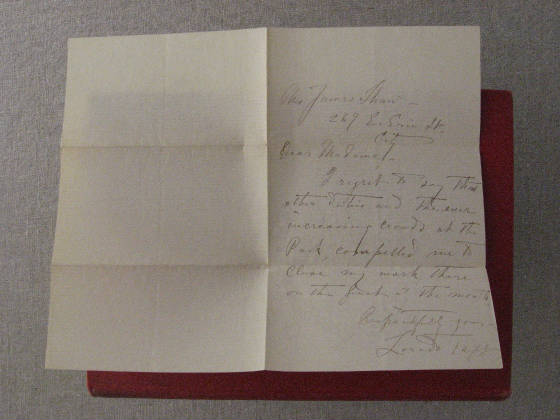 Mrs James Shaw -
269 E. Erie St.
City
Dear Madame, -
I regret to say that
other duties and the ever
increasing crowds at the
Park, compelled me to
close my work there
on the first of the month
Respectfully yours
Lorado Taft